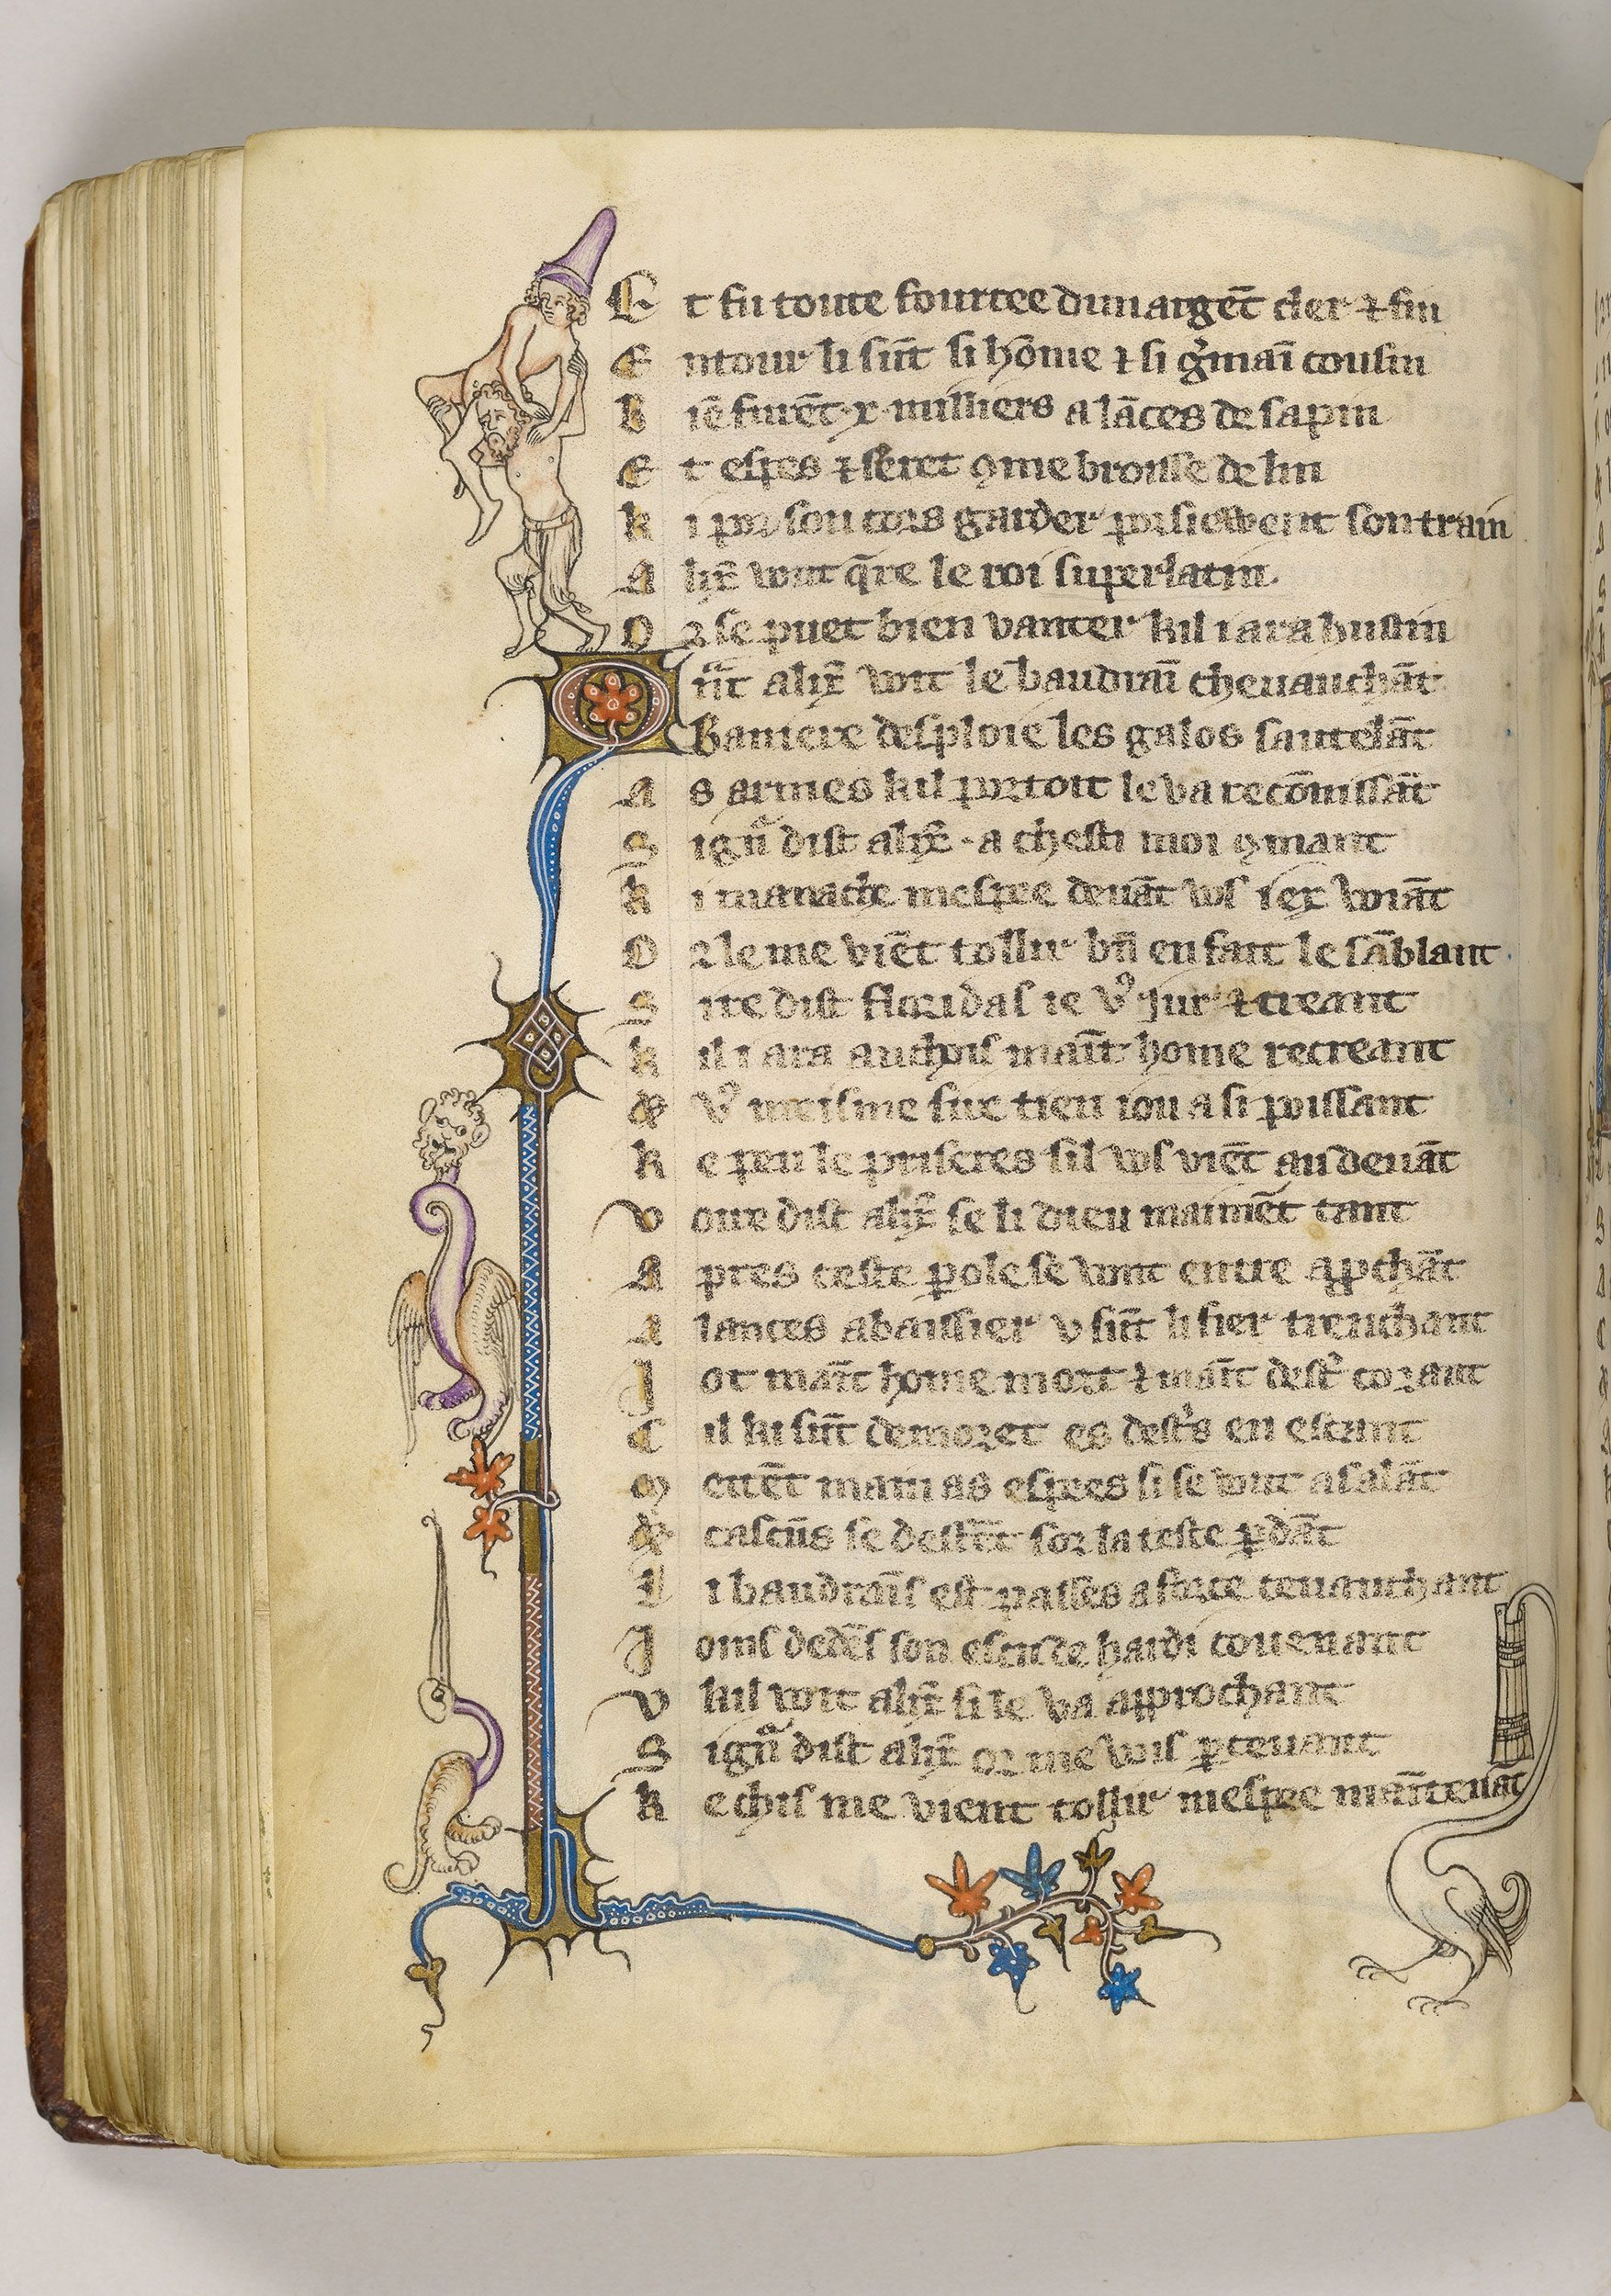 E t fu toute fourree dun argēt cler ⁊ fin
E ntour li sūt si hōme ⁊ si g̾maī cousin
B iē furēt · x · milliers a lāces de sapin
E t espes ⁊ serret ꝯme brousse de lin
K i por son cors garder porsiewent son train
A lix̄ vont q̄re le roi superlatin
O r se puet bien vanter kil i ara hustin
Q ūt alix̄ voit le baudraī cheuauchāt
Baniere desploie les galos sautelāt
A s armes kil portoit le va reconīssāt
S ign̄ dist alix̄ · a chesti moi ꝯmant
K i manache mespee deuāt vos iex voiāt
O r le me viēt tollir bn̄ en fait le sāblant
S ire dist floridas ie v⁹ jur ⁊ creant
K il i ara anchois maīt home recreant
& v⁹ meisme sire tieu iou a si poissant
K e peu le priseres sil vos viēt au deuāt
V oire dist alix̄ se li dieu maimēt tant
A pres ceste ꝑole se vont entre aꝓchāt
A lances abaissier v sūt li fier trenchant
I ot māīt home mort ⁊ māīt dest̾ corant
C il ki sūt demoret es dest̾s en estant
M ettēt mains as espees si se vont asalāt
& cascūs se desfēt sor la teste ꝑdāt
L i baudraīs est passes a force tenanchant
I oins dedēs son escu de hardi couenant
V kil voit alix̄ si le va approchant
S ign̄ dist alix̄ or me vois ꝑceuant
K e chis me vient tollir mespee māītenāt